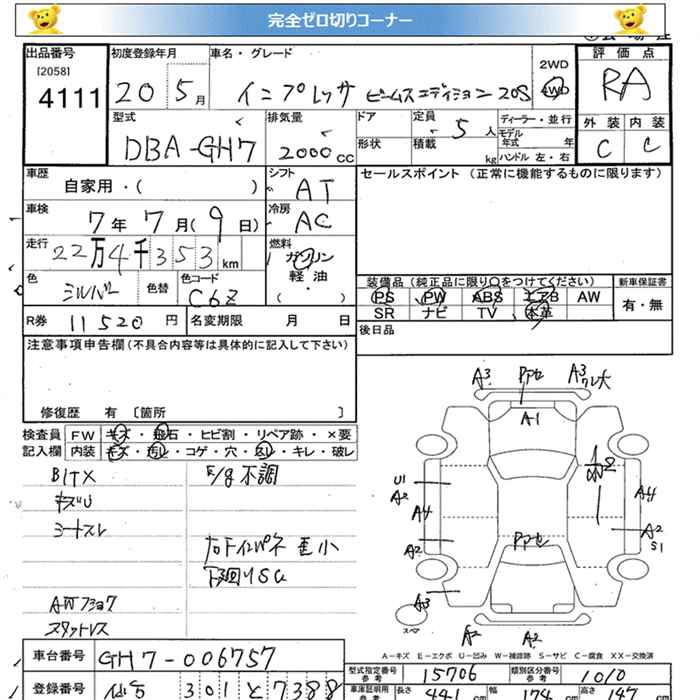 完全ゼロ切りコーナー
出品番号
[2058]
4111
初度登録年月
20 5月
車名・グレード
インプレッサ ビームスエディション 20S
2WD
4WD
評価点
RA
型式
DBA-GH7
排気量
2000cc
ドア
形状
定員
5人
積載
kg
ディーラー・並行
モデル年式 年
ハンドル 左・右
外装 内装
C C
車歴
自家用・( )
シフト
AT
セールスポイント(正常に機能するものに限ります)
車検
7年7月(9日)
冷房
AC
走行
22万4千353km
燃料
ガソリン
軽油
・
( )
色
シルバー
色替
色コード
C6Z
装備品(純正品に限り○をつけてください)
新車保証書
PS PW ABS エアB AW
SR ナビ TV 本革
有・無
R券 11520円
名変期限 月 日
後日品
注意事項申告欄(不具合内容等は具体的に記入して下さい)
修復歴 有〔箇所 〕
検査員記入欄
FW キズ・飛石・ヒビ割・リペア跡・×要
内装 キズ・汚レ・コゲ・穴・スレ・キレ・破レ
キズU
シートスレ
E/g不調
AWフショク
スタットレス
A3
A3
A1
U1
A2
A4
A2
A4
A2
S1
A3
スペア
A2
A2
A-キズ E-エクボ U-凹み W-補修跡 S-サビ C-腐食 XX-交換済
車台番号 GH7-006757
型式指定番号
参考
15706
類別区分番号
参考
1010
登録番号
301 と 7388
車庫証明用
参考
長さ
441cm
幅
cm
高さ
147